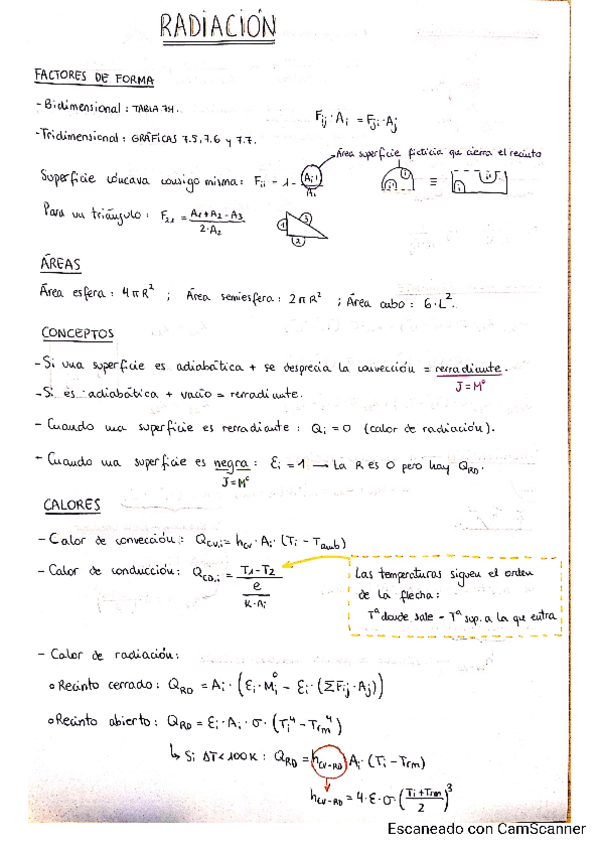 RADIACIÓN
FACTORES DE FORMA
- Bidimensional: TABLA 7.4.
Fij · Ai = Fji · Aj
- Tridimensional: GRÁFICAS 7.5, 7.6 y 7.7.
Área superficie ficticia que cierra el recinto
Superficie cóncava consigo misma: Fii = 1 - Ai'/Ai
(i') (i) ≡ (i) (i')
Para un triángulo: F21 = (A1 + A2 - A3)/(2·A2)
1 3 2
ÁREAS
Área esfera: 4πR² ; Área semiesfera: 2πR² ; Área cubo: 6·L².
CONCEPTOS
- Si una superficie es adiabática + se desprecia la convección = rerradiante.
J = M°
- Si es adiabática + vacío = rerradiante.
- Cuando una superficie es rerradiante: Qi = 0 (calor de radiación).
- Cuando una superficie es negra: Ei = 1 → La R es 0 pero hay QRD.
J = M°
CALORES
- Calor de convección: Qcv,i = hcv · Ai · (Ti - Tamb)
- Calor de conducción: Qcd,i = (T1 - T2)/(e/(K·Ai))
Las temperaturas siguen el orden
de la flecha:
Tª donde sale - Tª sup. a la que entra
- Calor de radiación:
• Recinto cerrado: QRD = Ai · (Ei · Mi° - Ei · (ΣFij · Aj))
• Recinto abierto: QRD = Ei · Ai · σ · (Ti⁴ - Trm⁴)
↳ Si ΔT < 100K: QRD = hcv-RD Ai · (Ti - Trm)
hcv-RD = 4·E·σ·((Ti + Trm)/2)³
Escaneado con CamScanner